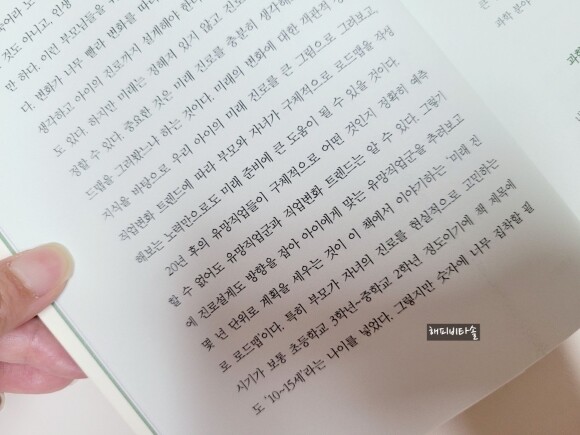 것도 아니고, 인생
만 하다. 이런 부모님들을
다. 변화가 너무 빨라 변화를 따라
생각하고 아이의 진로까지 설계해야 한다
도 있다. 하지만 미래는 정해져 있지 않고 진로
정할 수 있다. 중요한 것은 미래 진로를 충분히 생각해
드맵을 그려봤느냐 하는 것이다. 미래의 변화에 대한 객관적
지식을 바탕으로 우리 아이의 미래 진로를 큰 그림으로 그려보고,
직업변화 트렌드에 따라 부모와 자녀가 구체적으로 로드맵을 작성
해보는 노력만으로도 미래 준비에 큰 도움이 될 수 있을 것이다.
20년 후의 유망직업들이 구체적으로 어떤 것인지 정확히 예측
할 수 없어도 유망직업군과 직업변화 트렌드는 알 수 있다. 그렇기
에 진로설계도 방향을 잡아 아이에게 맞는 유망직업군을 추려보고
몇 년 단위로 계획을 세우는 것이 이 책에서 이야기하는 '미래 진
로 로드맵'이다. 특히 부모가 자녀의 진로를 현실적으로 고민하는
시기가 보통 초등학교 3학년~중학교 2학년 정도이기에 책 제목에
도 '10~15세'라는 나이를 넣었다. 그렇지만 숫자에 너무 집착할 필
과학 분야
해피비타솔